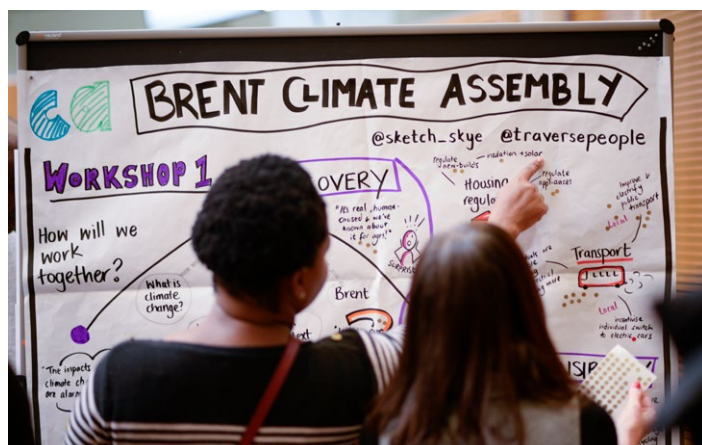 ca
BRENT CLIMATE ASSEMBLY
@sketch_skye @traversepeople
WORKSHOP 1
How will we
work
together?
What is
climate
change?
"The impacts
climate ch
are alarm
OVERY
"It's real, human-
caused & we've
known about
it for ages!"
SURPRISE
Brent
regulate
new-builds
insulation + solar
regulate
appliances
Housing
regula
improve &
electrify
public
transport
Local
Transport
Local
incentivise
individual switch
to electric cars